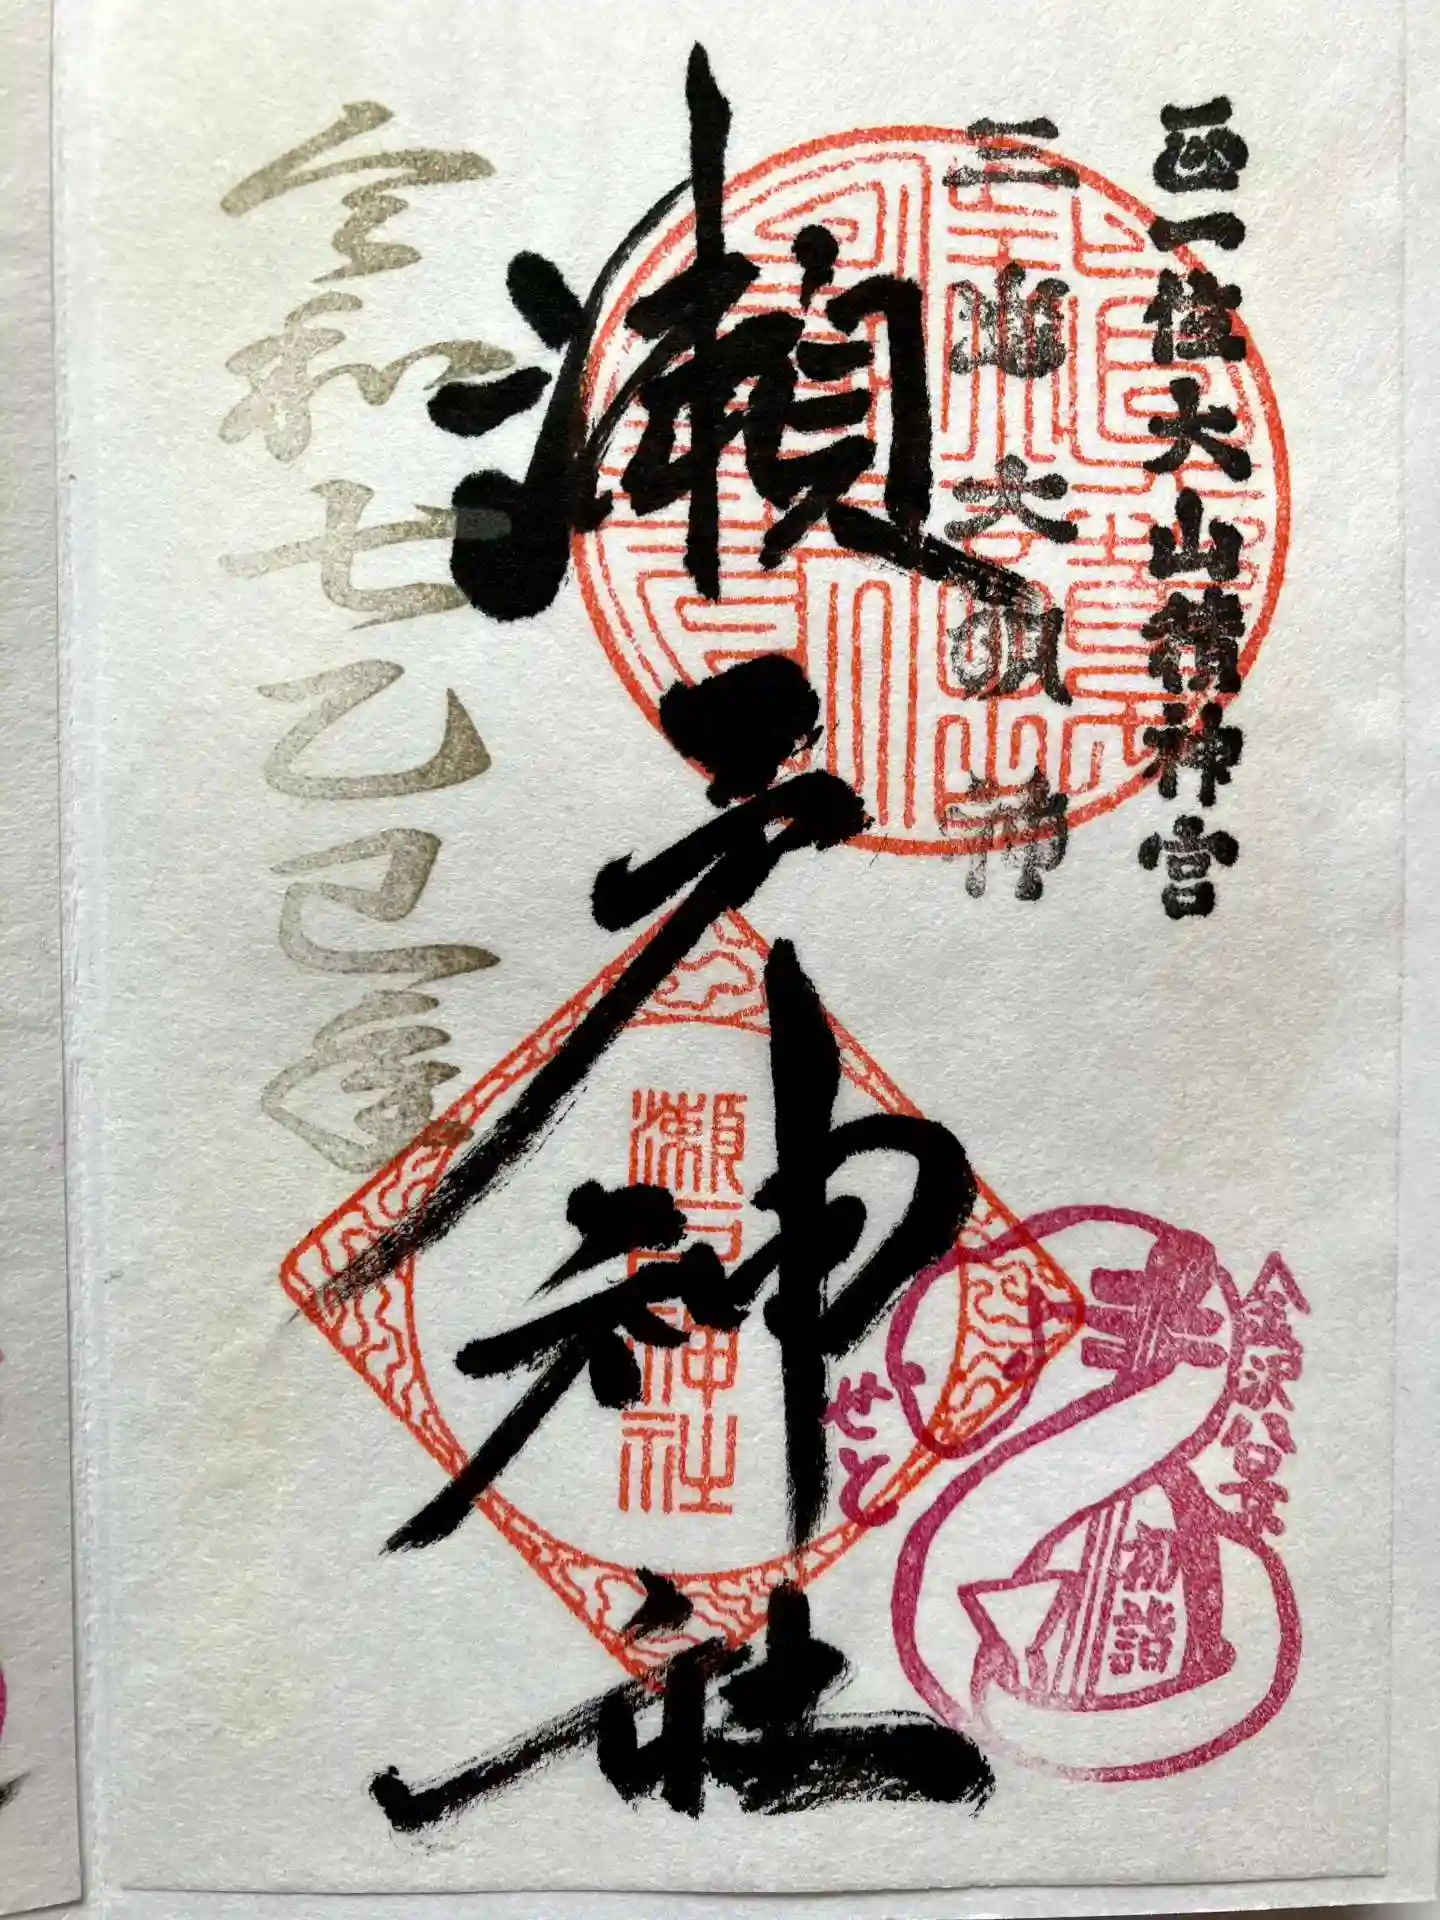 正一位大山積神宮
三嶋大明神
瀬戸神社
瀬戸神社
令和七乙巳歳
金沢八景
せと
初詣